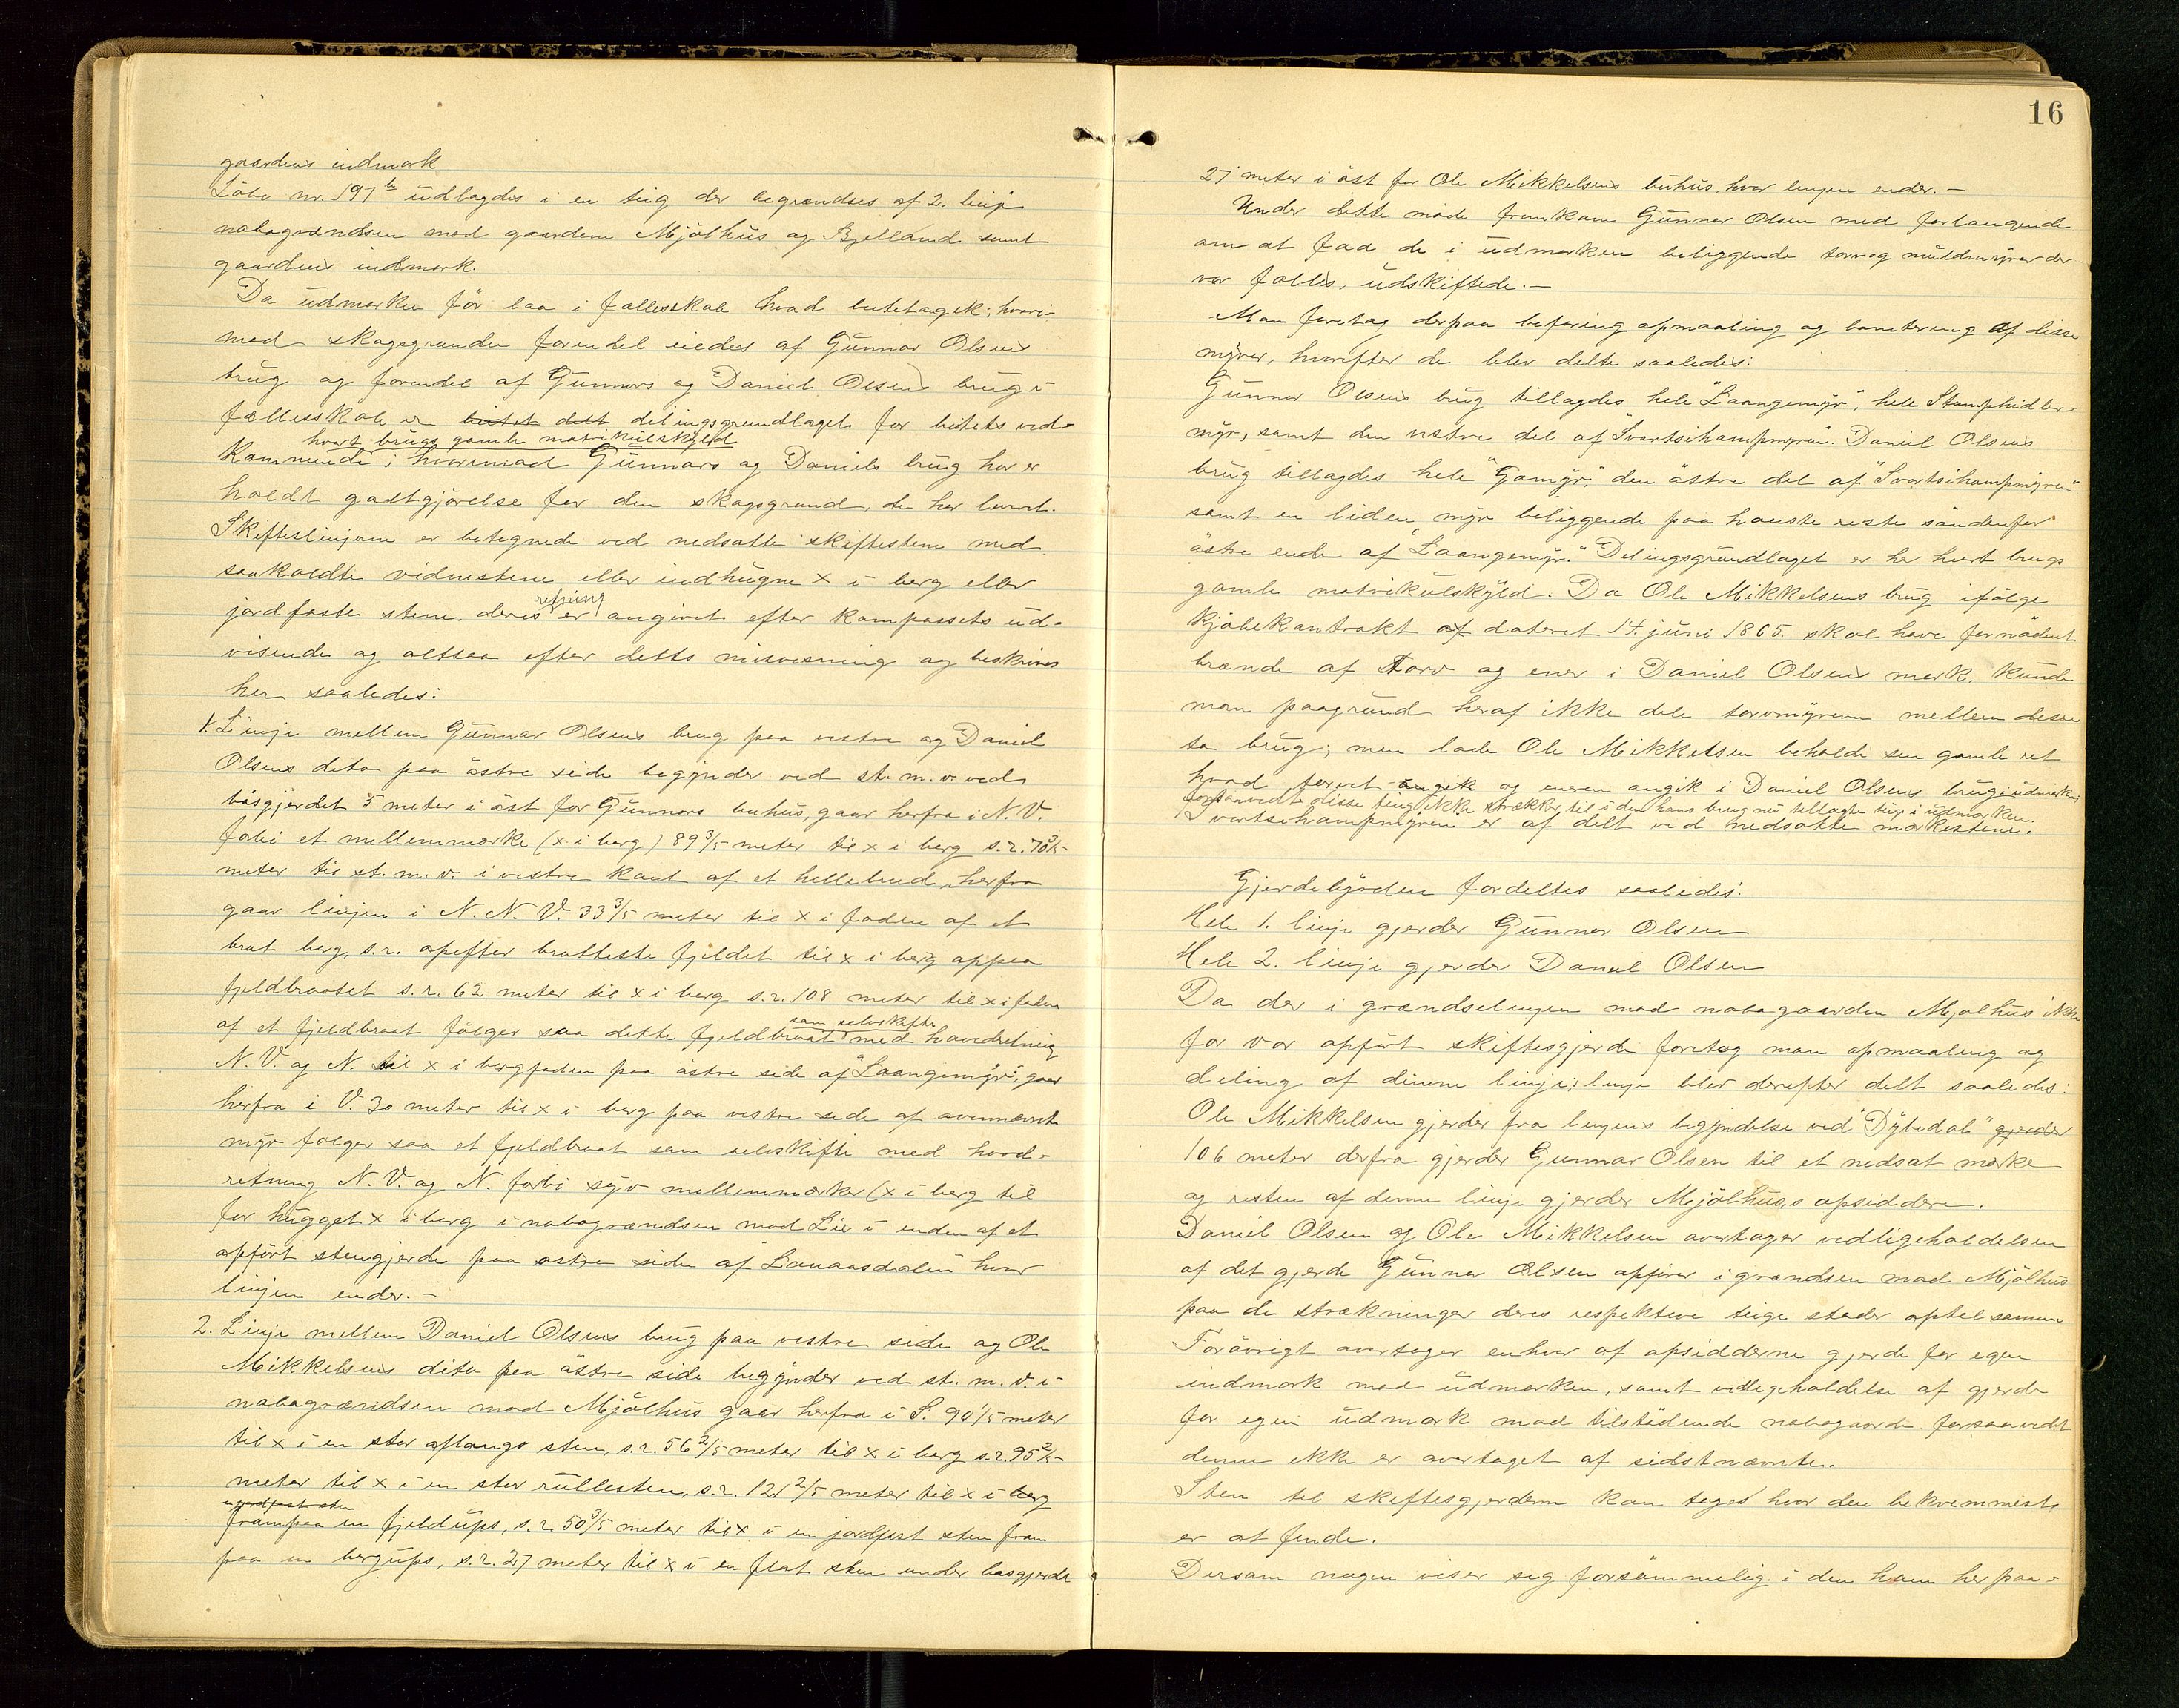 gaardens indmark
Löbe nr. 197 b udlagdes i en teig der begrændses af 2. linje
nabogrændsen mod gaardene Mjölhus og Bjelland samt
gaardens indmark.
Da udmarken för laa i fællesskab hvad beitet angik; hvori-
mod skoggrunden forendel eiedes af Gunnar Olsens
brug og forendel af Gunnars og Daniel Olsens brug i
fællesskab er delingsgrundlaget for beitets ved-
hvert brugs gamle matrikulskyld
kommende; hvorimod Gunnars og Daniels brug her er
holdt godtgjörelse for den skogsgrund, de har levert.
Skifteslinjerne er betegnede ved nedsatte skiftestene med
saakaldte vidnestene eller indhugne x i berg eller
jordfaste stene. deres retning er angivet efter kompassets ud-
visende og altsaa efter dets misvisning og beskrives
her saaledes:
1. Linje mellem Gunnar Olsens brug paa vestre og Daniel
Olsens dito paa östre side begynder ved st. m. v. ved
bösgjerdet 5 meter i öst for Gunnars buhus, gaar herfra i N. V.
forbi et mellemmærke (x i berg) 89 3/5 meter til x i berg s. r. 70 3/5
meter til st. m. v. i vestre kant af et hellebrud, herfra
gaar linjen i N. N. V. 33 3/5 meter til x i foden af et
brat berg, s. r. opefter bratteste fjeldet til x i berg oppaa
fjeldbrattet s. r. 62 meter til x i berg s. r. 108 meter til x i foden
af et fjeldbraat fölger saa dette fjeldbraat som selvskifte med hovedretning
N. V. og N. til x i bergfoden paa östre side af "Laangemyr", gaar
herfra i V. 30 meter til x i berg paa vestre side af ovennævnte
myr fölger saa et fjeldbraat som selvskifte med hoved-
retning N. V. og N. forbi syv mellemmærker (x i berg til
för hugget x i berg i nabogrændsen mod Lie i enden af et
opfört stengjerde paa östre side af Lauaasdalen hvor
linjen ender. -
2. Linje mellem Daniel Olsens brug paa vestre side og Ole
Mikkelsens dito paa östre side begynder ved st. m. v. i
nabogrændsen mod Mjölhus gaar herfra i S. 90 1/5 meter
til x i en stor aflangt sten, s. r. 56 2/5 meter til x i berg s. r. 95 2/5
meter til x i en stor rullesten, s. r. 121 2/5 meter til x i berg
frampaa en fjeldups, s. r. 50 3/5 meter til x i en jordfast sten fram
paa en bergups, s. r. 27 meter til x i en flat sten under bösgjerdet
16
27 meter i öst for Ole Mikkelsens buhus, hvor linjen ender. -
Under dette möde fremkom Gunnar Olsen med forlangende
om at faa de i udmarken beliggende torv og muldmyrer der
var fælles, udskiftede. -
Man foretog derpaa befaring opmaaling og bonitering af disse
myrer, hvorefter de blev delte saaledes:
Gunnar Olsens brug tillagdes hele "Laangemyr", hele
myr, samt den vestre del af Svartsihampmyren. Daniel Olsens
brug tillagdes hele "Gamyr", den östre del af "Svartsihampmyren"
samt en liden myr beliggende paa höieste reste söndenfor
östre ende af "Laangemyr." Delingsgrundlaget er her hvert brugs
gamle matrikulskyld. Da Ole Mikkelsens brug ifölge
kjöbekontrakt af dateret 14. juni 1865. skal have fornödent
brænde af torv og ener i Daniel Olsens mark, kunde
man paagrund heraf ikke dele torvmyrene mellem disse
to brug; men lade Ole Mikkelsen beholde sin gamle ret
hvad torvet angik og eneren angik i Daniel Olsens brugs udmark;
forsaavidt disse ting ikke strækker til i den hans brug nu tillagte teig i udmarken.
Svartsihampmyren er af delt ved nedsatte mærkestene.
Gjerdebyrden fordeltes saaledes:
Hele 1. linje gjerder Gunnar Olsen
Hele 2. linje gjerder Daniel Olsen
Da der i grændselinjen mod nabogaarden Mjölhus ikke
för var opfört skiftesgjerde foretog man opmaaling og
deling af denne linje; linje blev derefter delt saaledes:
Ole Mikkelsen gjerder fra linjens begyndelse ved "Dybedal" gjerder
106 meter derfra gjerder Gunnar Olsen til et nedsat mærke
og resten af denne linje gjerder Mjölhus,s opsiddere.
Daniel Olsen og Ole Mikkelsen overtager vedligeholdelsen
af det gjerde Gunnar Olsen opförer i grændsen mod Mjölhus
paa de strækninger deres respektive teige stöder optil samme
Forövrigt overtager enhver af opsidderne gjerde for egen
indmark mod udmarken, samt vedligeholdelse af gjerde
for egen udmark mod tilstödende nabogaarde forsaavidt
denne ikke er overtaget af sidstnævnte.
Sten til skiftesgjerderne kan tages hvor den bekvemmest
er at finde.
Dersom nogen viser seg forsömmelig i den ham her paa-